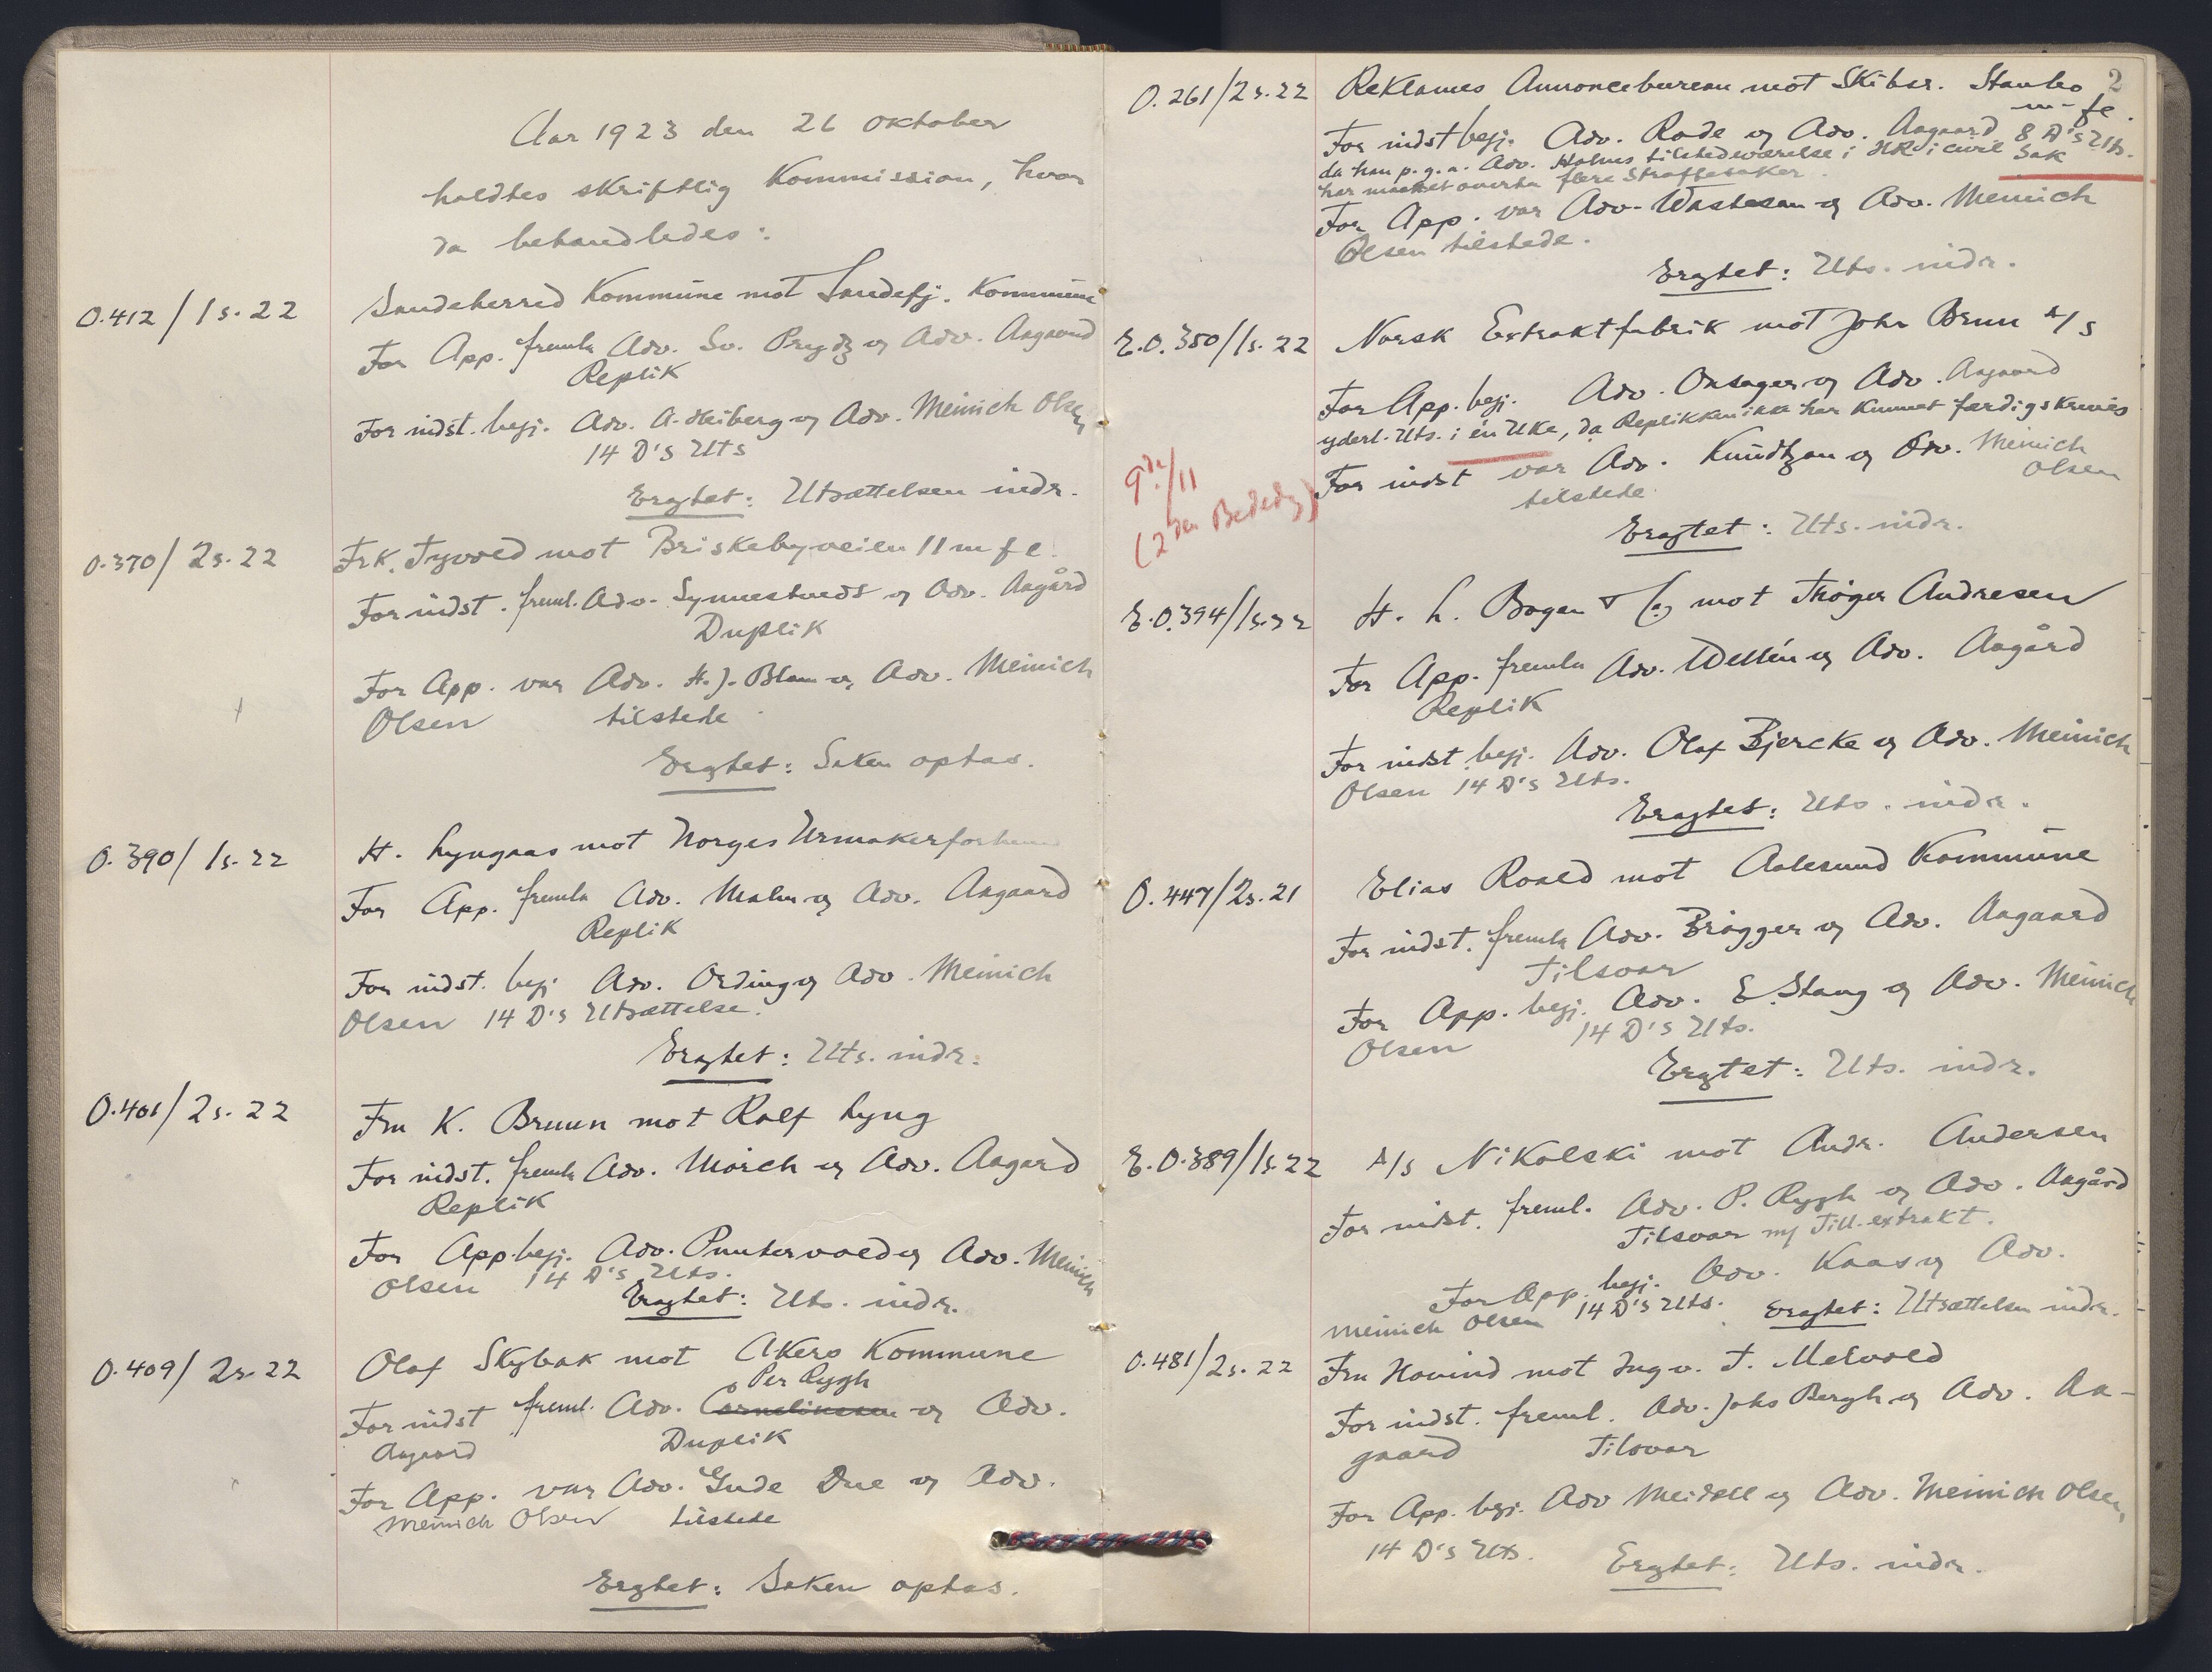 Aar 1923 den 26 Oktober
holdtes skriftlig Kommission, hvor
da behandledes:
O.412/1s.22
Sandeherred Kommune mot Sandefj. Kommune
For App. fremla Adv. Sv. Prydz og Adv. Aagaard
Replik
For indst. begj. Adv. A. Heiberg og Adv. Meinich Olsen
14 D's Uts
Eragtet: Utsættelsen indr.
O.370/2s.22
Frk. Tyvold mot Briskebyveien 11 m fl.
For indst. freml. Adv. Synnestvedt og Adv. Aagård
Duplik
For App. var Adv. H.J. Blom og Adv. Meinich
Olsen tilstede
Eragtet: Saken optas.
O.390/1s.22
H. Lyngaas mot Norges Urmakerforbund
For App. fremla Adv. Malm og Adv. Aagaard
Replik
For indst. begj. Adv. Ording og Adv. Meinich
Olsen 14 D's Utsættelse.
Eragtet: Uts. indr.
O.401/2s.22
Fru K. Bruun mot Rolf Lyng
For indst. fremla Adv. Mörch og Adv. Aagard
Replik
For App. begj. Adv. Puntervold og Adv. Meinich
Olsen 14 D's Uts.
Eragtet: Uts. indr.
O.409/2s.22
Olaf Skybak mot Akers Kommune
Per Rygh
For indst freml. Adv. Corneliussen og Adv.
Aagaard Duplik
For App. var Adv. Gude Due og Adv.
Meinich Olsen tilstede
Eragtet: Saken optas.
2
O.261/2s.22
Reklames Annoncebureau mot Skibsr. Staubo
m. fl.
For indst begj. Adv. Rode og Adv. Aagaard 8 D's Uts.
da han p.g.a. Adv. Holms tilstedeværelse i HR i civil Sak
har maattet overta flere Straffesaker.
For App. var Adv. Wastesen og Adv. Meinich
Olsen tilstede.
Eragtet: Uts. indr.
E.O.350/1s.22
Norsk Extraktfabrik mot Johr Brun A/S
For App. begj. Adv. Onsager og Adv. Aagaard
yderl. Uts. i én Uke, da Replikken ikke har kunnet færdigskrives
9de/11
(2den Bededag)
For indst var Adv. Knudtzon og Adv. Meinich
Olsen
tilstede
Eragtet: Uts. indr.
E.O.394/1s.22
H. L. Bogen & Co mot Thöger Andresen
For App. fremla Adv. Wellén og Adv. Aagård
Replik
For indst. begj. Adv. Olaf Bjercke og Adv. Meinich
Olsen 14 D's Uts.
Eragtet: Uts. indr.
O.447/2s.21
Elias Roald mot Aalesund Kommune
For indst. fremla Adv. Brögger og Adv. Aagaard
Tilsvar
For App. begj. Adv. E. Stang og Adv. Meinich
Olsen 14 D's Uts.
Eragtet: Uts. indr.
E.O.389/1s.22
A/S Nikolski mot Andr. Andersen
For indst. freml. Adv. P. Rygh og Adv. Aagård
Tilsvar m/ Till.extrakt.
For App. begj. Adv. Kaas og Adv.
Meinich Olsen 14 D's Uts. Eragtet: Utsættelsen indr.
O.481/2s.22
Fru Hovind mot Ingv. T. Melvold
For indst. freml. Adv. Johs Bergh og Adv. Aa-
gaard Tilsvar
For App. begj. Adv Meidell og Adv. Meinich Olsen,
14 D's Uts. Eragtet: Uts. indr.